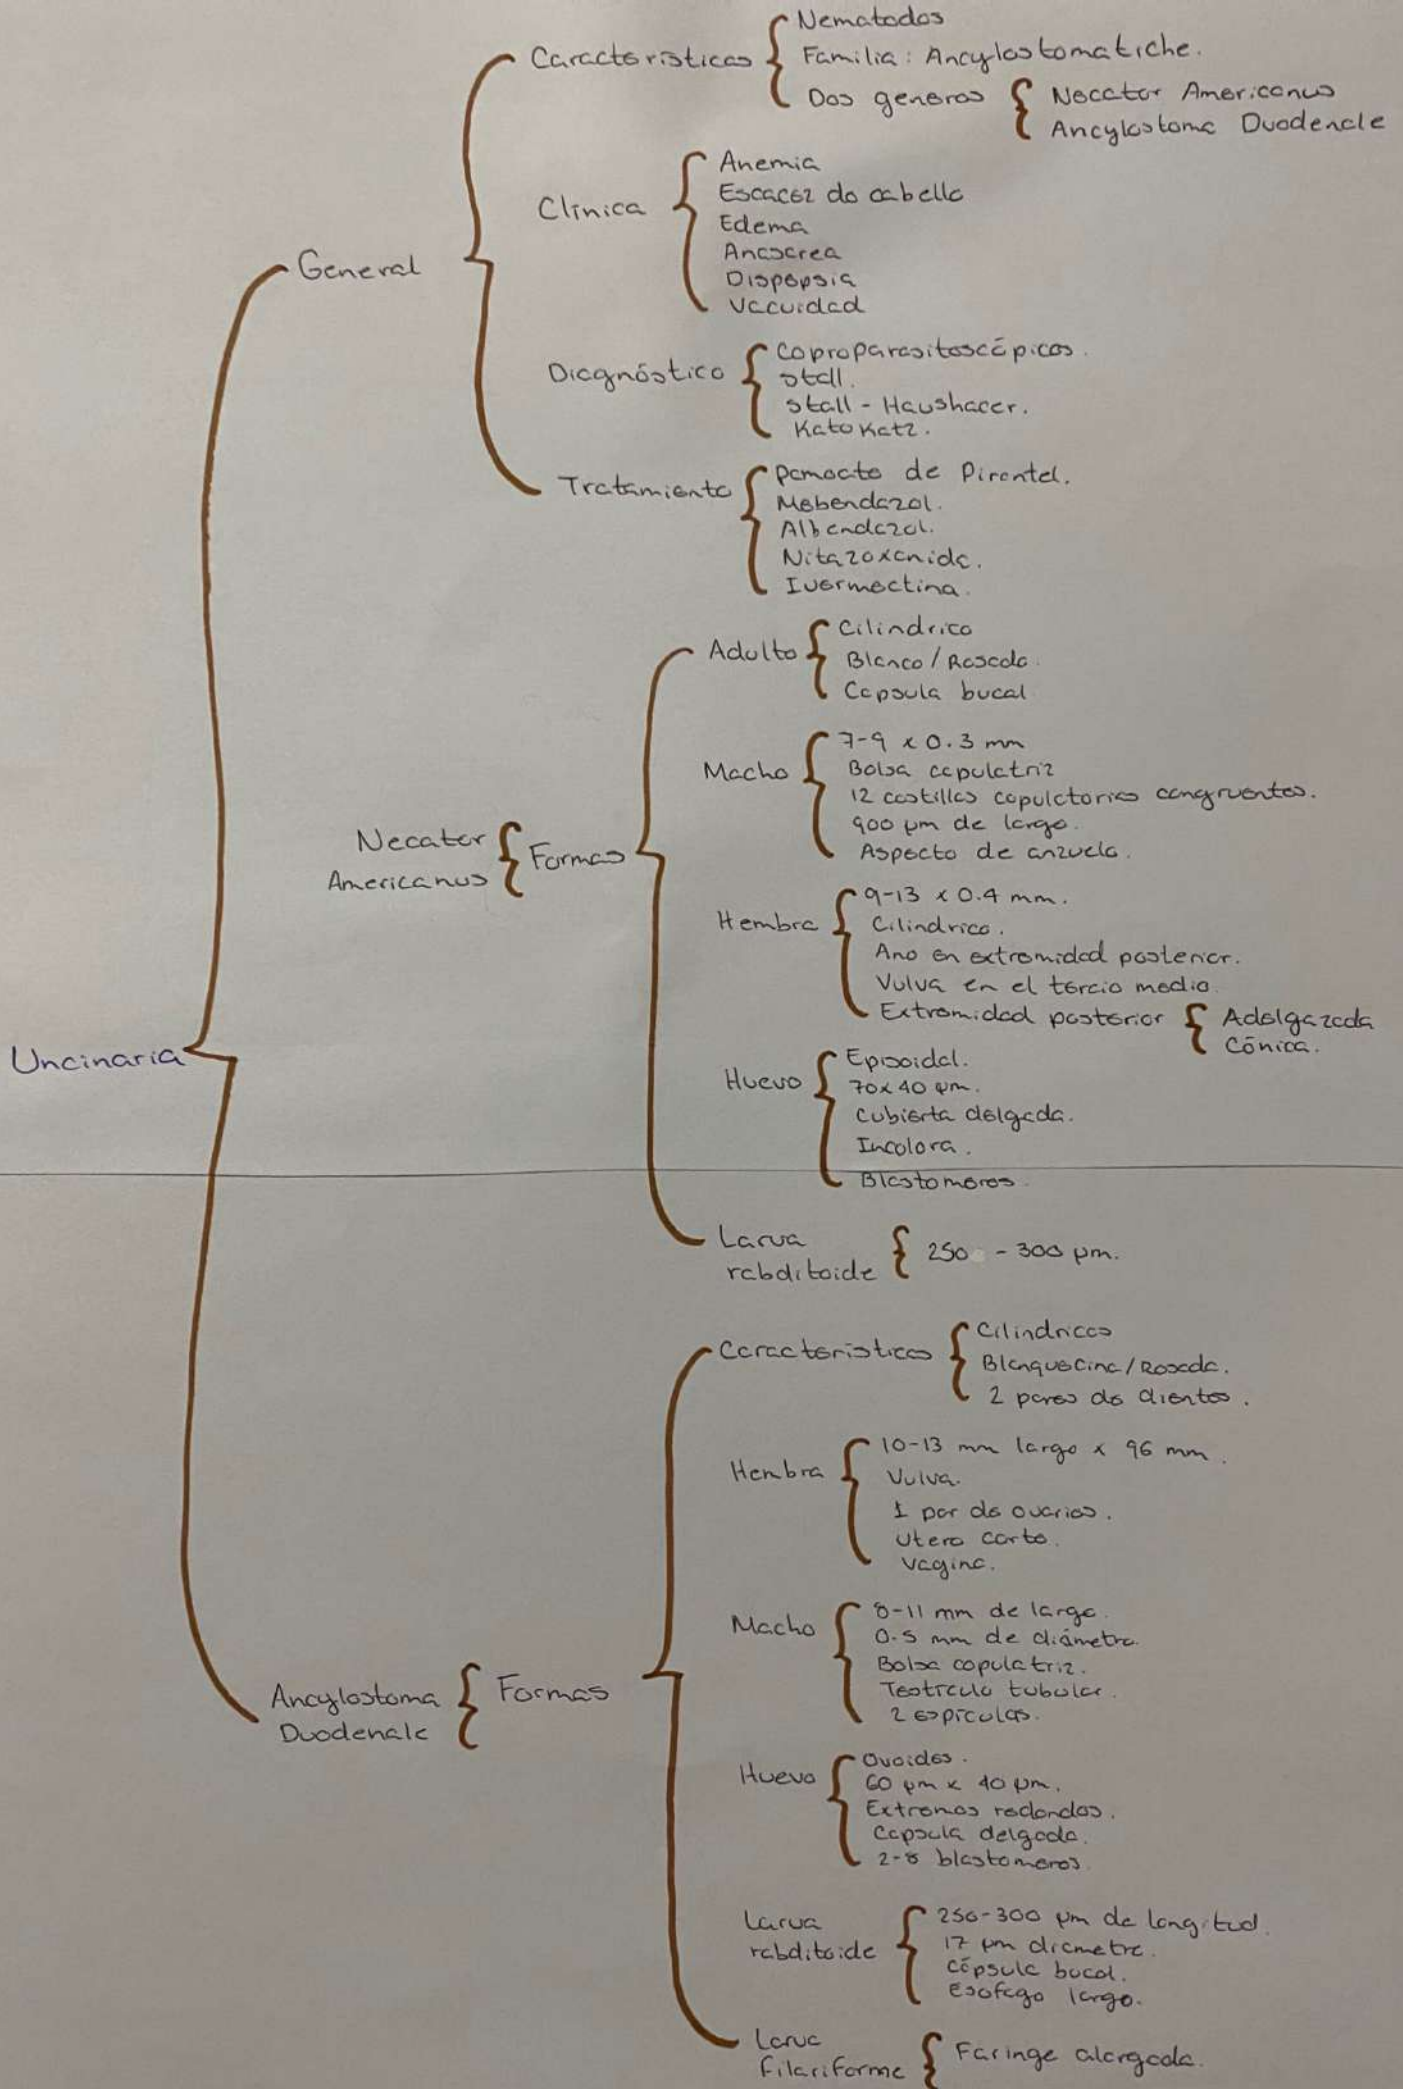 Nematodos
Características
Familia: Ancylostomatiche.
Dos generos
Necator Americanus
Ancylostoma Duodenale
Clínica
Anemia
Escacez de cabello
Edema
Anasarca
Dispepsia
Vacuidad
General
Diagnóstico
Coproparasitoscópicos.
Stall.
Stall - Haushacer.
Kato Katz.
Tratamiento
Pamoato de Pirantel.
Mebendazol.
Albendazol.
Nitazoxanida.
Ivermectina.
Adulto
Cilindrico
Blanco / Rosado.
Capsula bucal
Macho
7-9 x 0.3 mm
Bolsa copulatriz
12 costillas copulatorias congruentes.
900 µm de largo.
Aspecto de anzuelo.
Necator
Americanus
Formas
Hembra
9-13 x 0.4 mm.
Cilindrico.
Ano en extremidad posterior.
Vulva en el tercio medio.
Extremidad posterior
Adelgazada
Cónica.
Uncinaria
Huevo
Episoidal.
70x40 µm.
Cubierta delgada.
Incolora.
Blastomeros.
Larva
rabditoide
250 - 300 µm.
Características
Cilindricos
Blanquecina/Rosada.
2 pares de dientes.
Hembra
10-13 mm largo x 96 mm.
Vulva.
1 par de ovarios.
Utero corto.
Vagina.
Macho
8-11 mm de largo.
0.5 mm de diámetro.
Bolsa copulatriz.
Testículo tubular.
2 espículas.
Ancylostoma
Duodenale
Formas
Huevo
Ovoides.
60 µm x 40 µm.
Extremos redondos.
Capsula delgada.
2-8 blastomeros.
Larva
rabditoide
250-300 µm de longitud.
17 µm diametro.
Cápsula bucal.
Esofago largo.
Larva
filariforme
Faringe alargada.